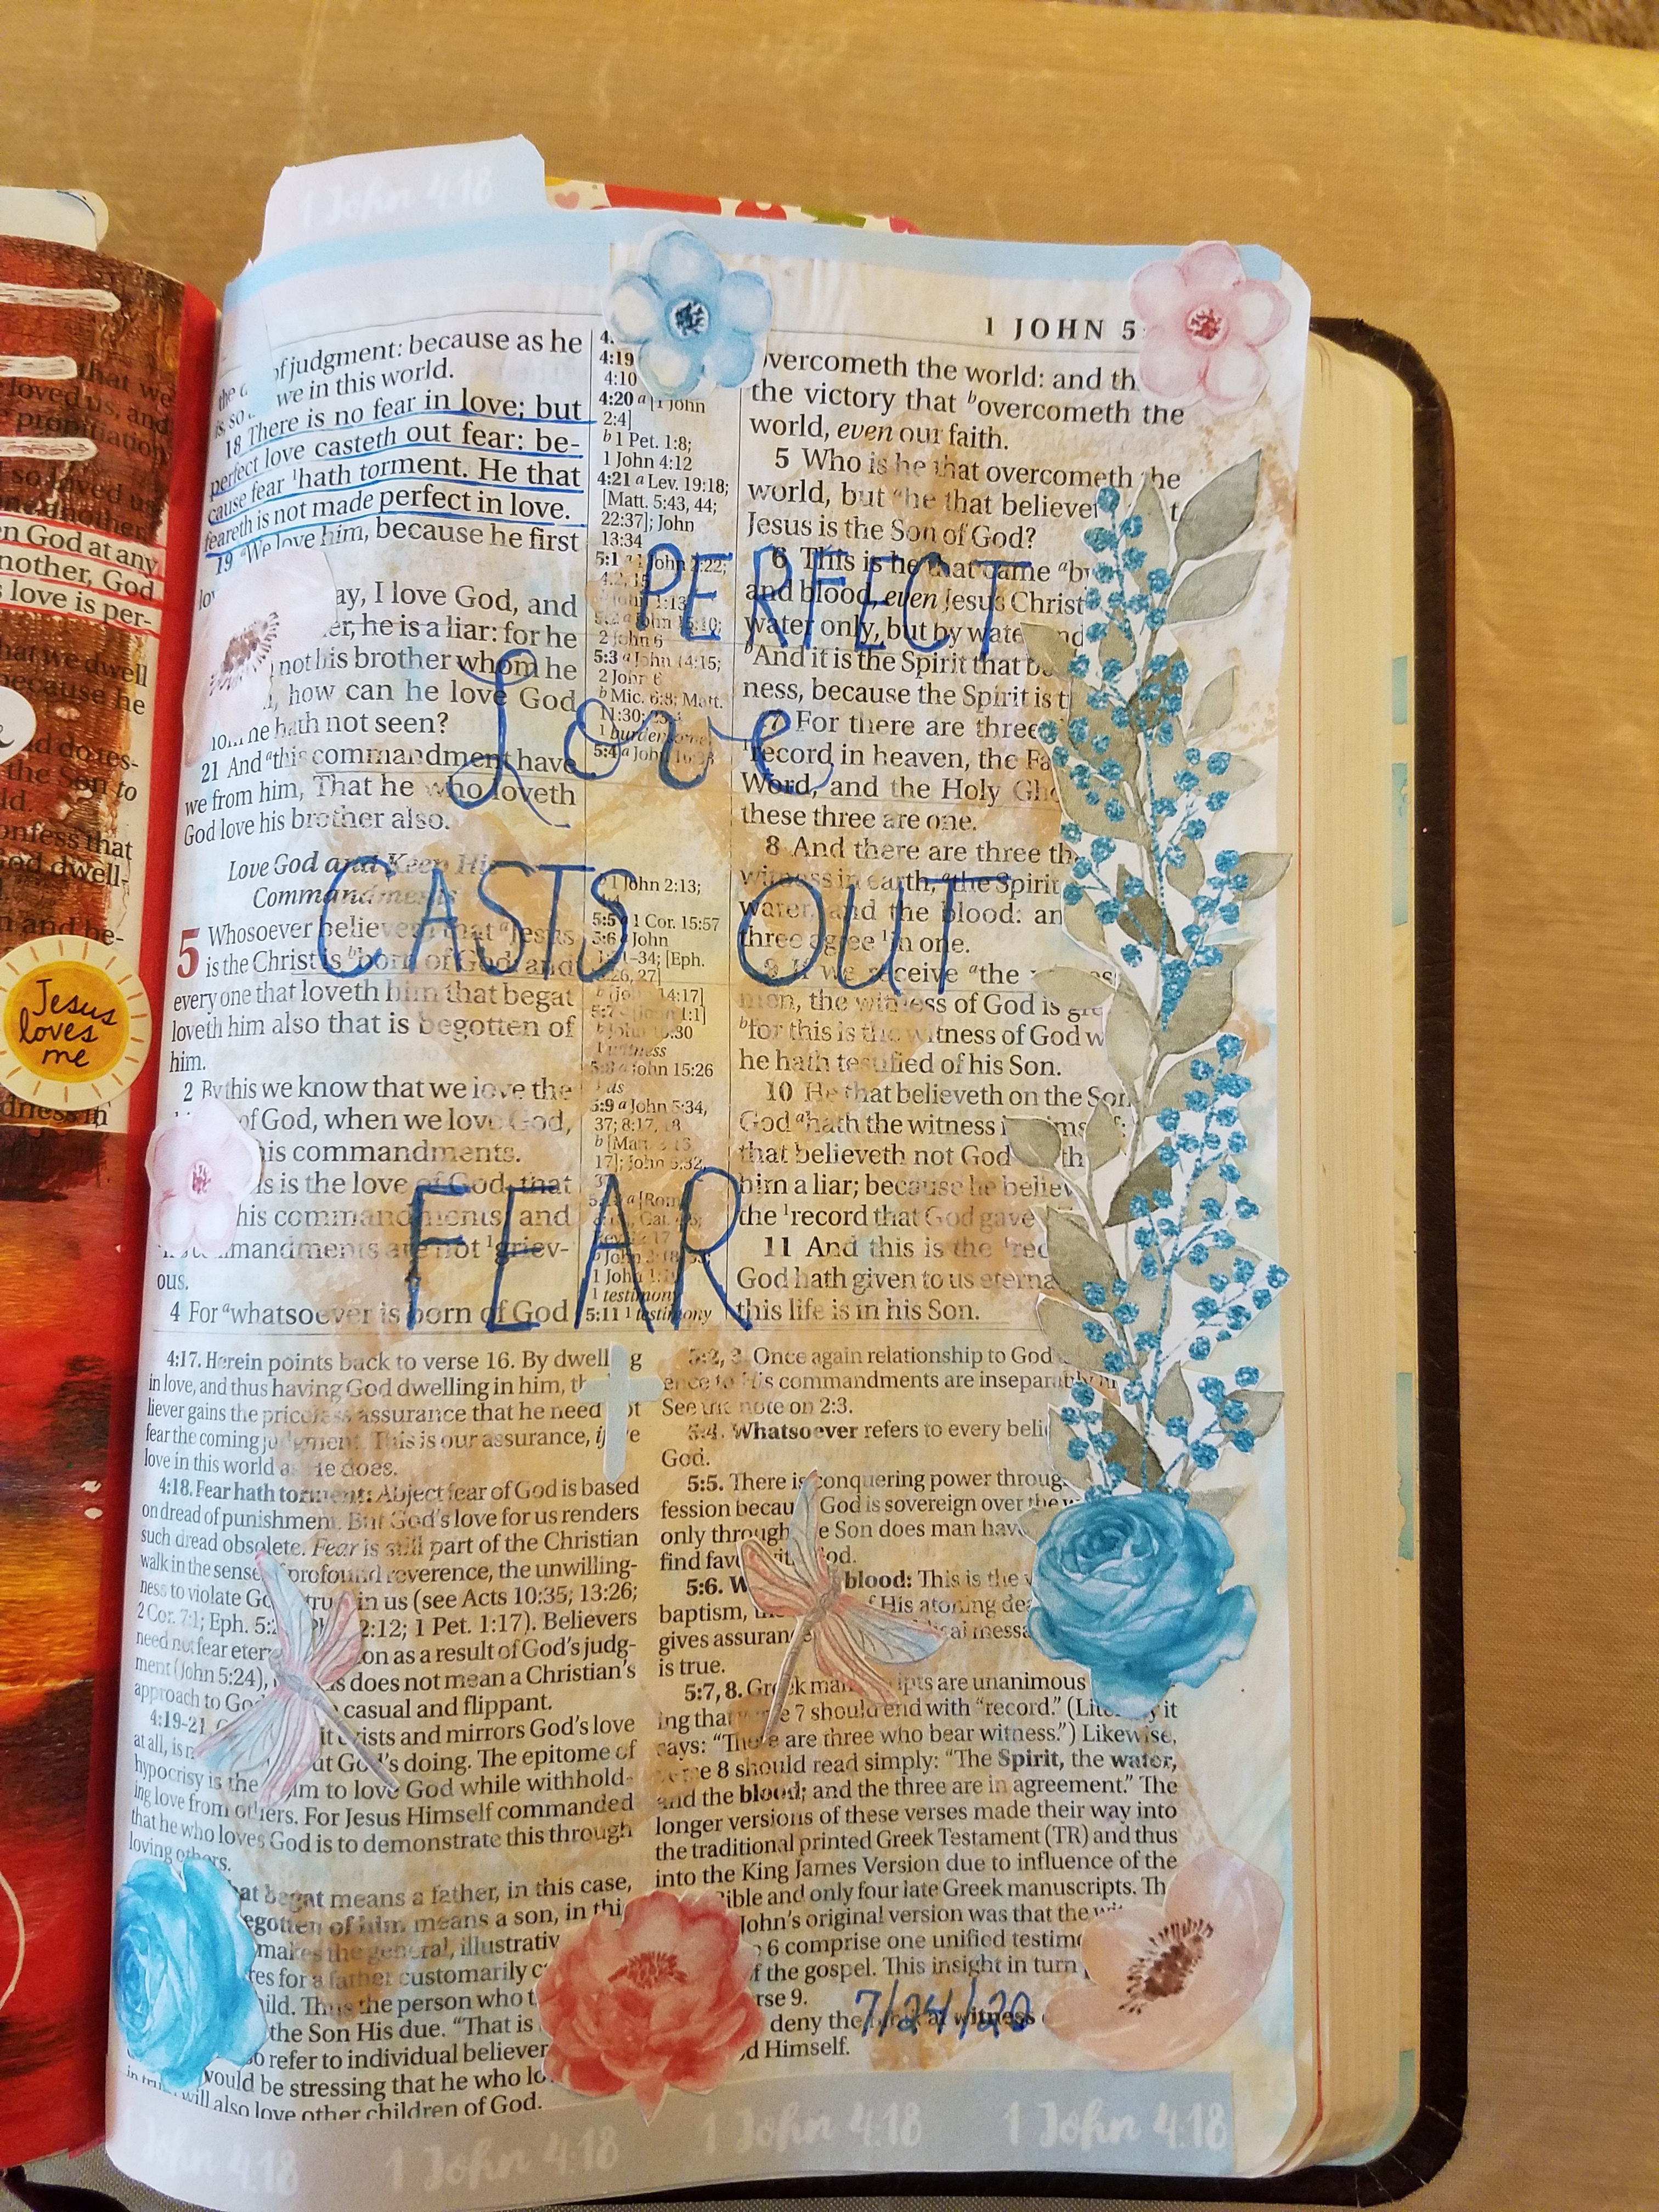 1 John 4:18
1 JOHN 5
of judgment: because as he
we in this world.
18 There is no fear in love; but
perfect love casteth out fear: be-
cause fear 1hath torment. He that
feareth is not made perfect in love.
19 aWe love him, because he first
ay, I love God, and
er, he is a liar: for he
not his brother whom he
how can he love God
he hath not seen?
21 And athis commandment have
we from him, That he who loveth
God love his brother also.
Love God and Keep His
Commandments
5 Whosoever believeth that aJesus
is the Christ is bborn of God: and
every one that loveth him that begat
loveth him also that is begotten of
him.
2 By this we know that we love the
of God, when we love God,
his commandments.
is is the love of God, that
his commandments, and
commandments are not 1griev-
ous.
4 For awhatsoever is born of God
4:19
4:10
4:20 a [1 John
2:4]
b 1 Pet. 1:8;
1 John 4:12
4:21 a Lev. 19:18;
[Matt. 5:43, 44;
22:37]; John
13:34
5:1 a 1 John 2:22;
2 John 6
5:3 a John 14:15;
2 John 6
b Mic. 6:8; Matt.
11:30;
1 burdensome
5:4 a John 16:33
1 John 2:13;
5:5 a 1 Cor. 15:57
5:6 a John
1:31–34; [Eph.
b [John 14:17]
1 witness
5:8 a John 15:26
5:9 a John 5:34,
37; 8:17, 18
17]; John 5:32,
1 testimony
5:11 1 testimony
overcometh the world: and th
the victory that bovercometh the
world, even our faith.
5 Who is he that overcometh the
world, but ahe that believe
Jesus is the Son of God?
6 This is he that came aby
and blood, even Jesus Christ
water only, but by water and
bAnd it is the Spirit that b
ness, because the Spirit is t
7 For there are three
record in heaven, the Fa
Word, and the Holy Gho
these three are one.
8 And there are three th
witness in earth, athe Spirit
water, and the blood: an
three agree 1in one.
9 If we receive athe witness
men, the witness of God is gre
bfor this is the witness of God w
he hath testified of his Son.
10 He that believeth on the Son
God ahath the witness in himself:
that believeth not God hath
him a liar; because he believ
the 1record that God gave
11 And this is the 1rec
God hath given to us eterna
this life is in his Son.
PERFECT
Love
CASTS OUT
FEAR
4:17. Herein points back to verse 16. By dwelling
in love, and thus having God dwelling in him, th
liever gains the priceless assurance that he need not
fear the coming judgment. This is our assurance, if we
love in this world as He does.
4:18. Fear hath torment: Abject fear of God is based
on dread of punishment. But God's love for us renders
such dread obsolete. Fear is still part of the Christian
walk in the sense of profound reverence, the unwilling-
ness to violate God's trust in us (see Acts 10:35; 13:26;
2 Cor. 7:1; Eph. 5:2 Phil. 2:12; 1 Pet. 1:17). Believers
need not fear eter on as a result of God's judg-
ment (John 5:24), this does not mean a Christian's
approach to God casual and flippant.
4:19–21. it exists and mirrors God's love
at all, is at God's doing. The epitome of
hypocrisy is the claim to love God while withhold-
ing love from others. For Jesus Himself commanded
that he who loves God is to demonstrate this through
loving others.
hat begat means a father, in this case,
egotten of him means a son, in thi
makes the general, illustrativ
res for a father customarily c
hild. Thus the person who t
the Son His due. "That is
o refer to individual believer
would be stressing that he who lo
will also love other children of God.
5:2, 3. Once again relationship to God
ence to His commandments are inseparably
See the note on 2:3.
5:4. Whatsoever refers to every beli
God.
5:5. There is conquering power throug
fession because God is sovereign over the w
only through the Son does man hav
find favor with God.
5:6. W blood: This is the
baptism, of His atoning dea
gives assurance messa
is true.
5:7, 8. Greek manuscripts are unanimous
ing that verse 7 should end with "record." (Literally it
says: "There are three who bear witness.") Likewise,
verse 8 should read simply: "The Spirit, the water,
and the blood; and the three are in agreement." The
longer versions of these verses made their way into
the traditional printed Greek Testament (TR) and thus
into the King James Version due to influence of the
Bible and only four late Greek manuscripts. Th
John's original version was that the
6 comprise one unified testimo
f the gospel. This insight in turn
rse 9.
deny the witness
d Himself.
7/24/20
1 John 4:18 1 John 4:18 1 John 4:18
4:18
that we
loved us, and
propitiation
so loved us,
one another.
en God at any
nother, God
s love is per-
hat we dwell
because he
nd do tes-
the Son to
ld.
onfess that
God dwell-
Jesus
loves
me